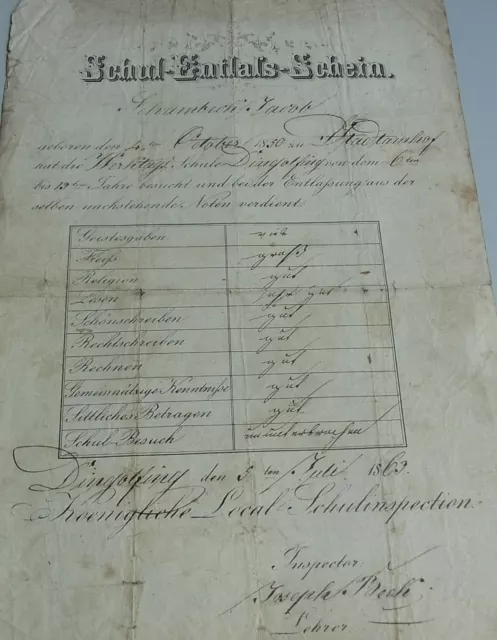 Schul-Entlaß-Schein.
Schambeck Jacob
geboren den 4ten October 1850 zu Stadtamhof
hat die Werktags Schule Dingolfing von dem 6ten
bis 13ten Jahre besucht und bei der Entlassung aus der
selben nachstehende Noten verdient.
Geistesgaben gut
Fleiß groß
Religion gut
Lesen sehr gut
Schönschreiben gut
Rechtschreiben gut
Rechnen gut
Gemeinnützige Kenntniße gut
Sittliches Betragen gut
Schul-Besuch ununterbrochen
Dingolfing den 5ten Juli 1863.
Koenigliche Local Schulinspection.
Inspector
Joseph
Lehrer